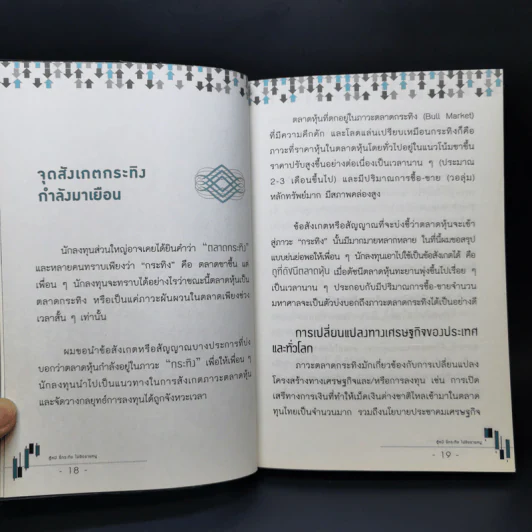 จุดสังเกตกระทิง
กำลังมาเยือน
นักลงทุนส่วนใหญ่อาจเคยได้ยินคำว่า "ตลาดกระทิง"
และหลายคนทราบเพียงว่า "กระทิง" คือ ตลาดขาขึ้น แต่
เพื่อน ๆ นักลงทุนจะทราบได้อย่างไรว่าขณะนี้ตลาดหุ้นเป็น
ตลาดกระทิง หรือเป็นแค่ภาวะผันผวนในตลาดเพียงช่วง
เวลาสั้น ๆ เท่านั้น
ผมขอนำข้อสังเกตหรือสัญญาณบางประการที่บ่ง
บอกว่าตลาดหุ้นกำลังอยู่ในภาวะ "กระทิง" เพื่อให้เพื่อน ๆ
นักลงทุนนำไปเป็นแนวทางในการสังเกตภาวะตลาดหุ้น
และจัดวางกลยุทธ์การลงทุนได้ถูกจังหวะเวลา
- 18 -
ตลาดหุ้นที่ตกอยู่ในภาวะตลาดกระทิง (Bull Market)
ที่มีความคึกคัก และโลดแล่นเปรียบเหมือนกระทิงก็คือ
ภาวะที่ราคาหุ้นในตลาดหุ้นโดยทั่วไปอยู่ในแนวโน้มขาขึ้น
ราคาปรับสูงขึ้นอย่างต่อเนื่องเป็นเวลานาน ๆ (ประมาณ
2-3 เดือนขึ้นไป) และมีปริมาณการซื้อ-ขาย (วอลุ่ม)
หลักทรัพย์มาก มีสภาพคล่องสูง
ข้อสังเกตหรือสัญญาณที่จะบ่งชี้ว่าตลาดหุ้นจะเข้า
สู่ภาวะ "กระทิง" นั้นมีมากมายหลากหลาย ในที่นี้ผมขอสรุป
แบบย่นย่อพอให้เพื่อน ๆ นักลงทุนเอาไปใช้เป็นข้อสังเกตได้ คือ
ดูที่ดัชนีตลาดหุ้น เมื่อดัชนีตลาดหุ้นทะยานพุ่งขึ้นไปเรื่อย ๆ
เป็นเวลานาน ๆ ประกอบกับมีปริมาณการซื้อ-ขายจำนวน
มหาศาลก็จะเป็นตัวบ่งบอกถึงภาวะตลาดกระทิงได้เป็นอย่างดี
การเปลี่ยนแปลงทางเศรษฐกิจของประเทศ
และทั่วโลก
ภาวะตลาดกระทิงมักเกี่ยวข้องกับการเปลี่ยนแปลง
โครงสร้างทางเศรษฐกิจและ/หรือการลงทุน เช่น การเปิด
เสรีทางการเงินที่ทำให้เม็ดเงินต่างชาติไหลเข้ามาในตลาด
ทุนไทยเป็นจำนวนมาก รวมถึงนโยบายประชาคมเศรษฐกิจ
- 19 -